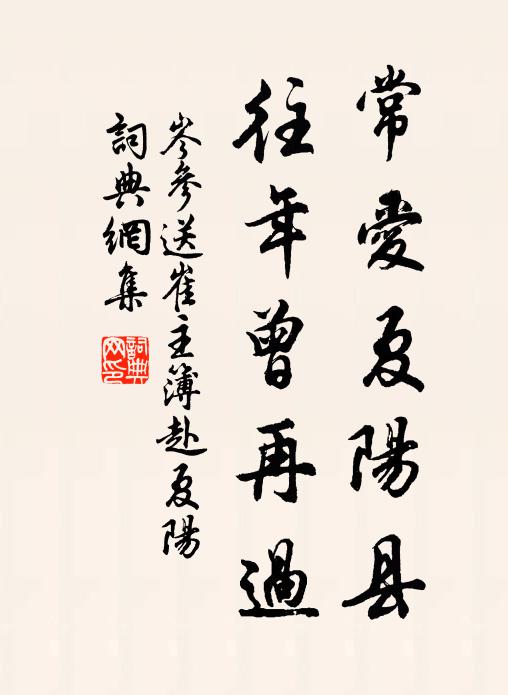 常愛夏陽县
往年曾再過
岑參送崔主簿赴夏陽
詞典網集
詞典網印